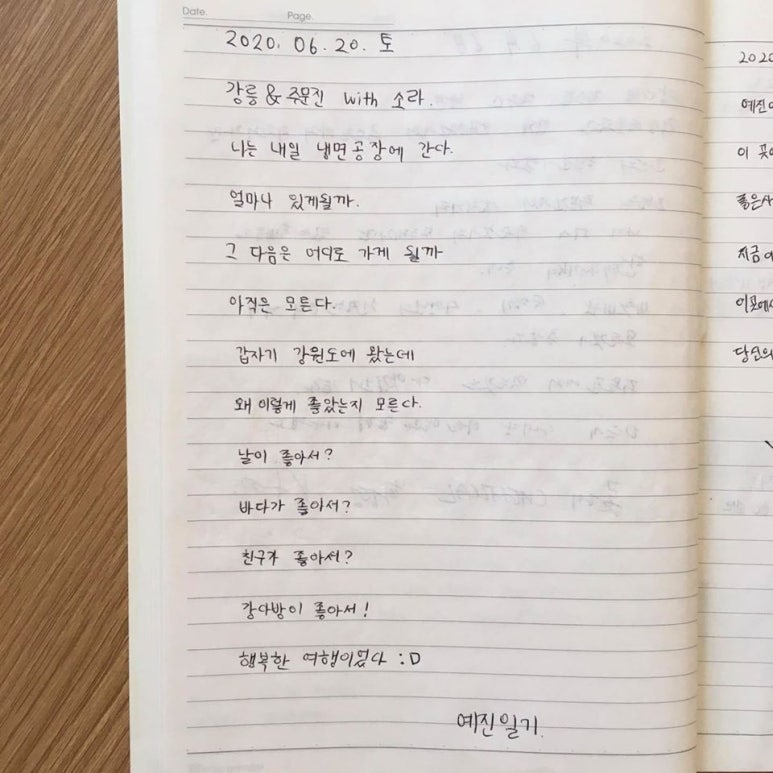 Date.
Page.
2020. 06. 20. 토
강릉 & 주문진 with 소라.
나는 내일 냉면공장에 간다.
얼마나 있게될까.
그 다음은 어디로 가게 될까
아직은 모른다.
갑자기 강원도에 왔는데
왜 이렇게 좋았는지 모른다.
날이 좋아서?
바다가 좋아서?
친구가 좋아서?
강다방이 좋아서!
행복한 여행이었다 :D
예진일기.
2020
예진이
이 곳에
좋은사
지금 이
이곳에서
당신의